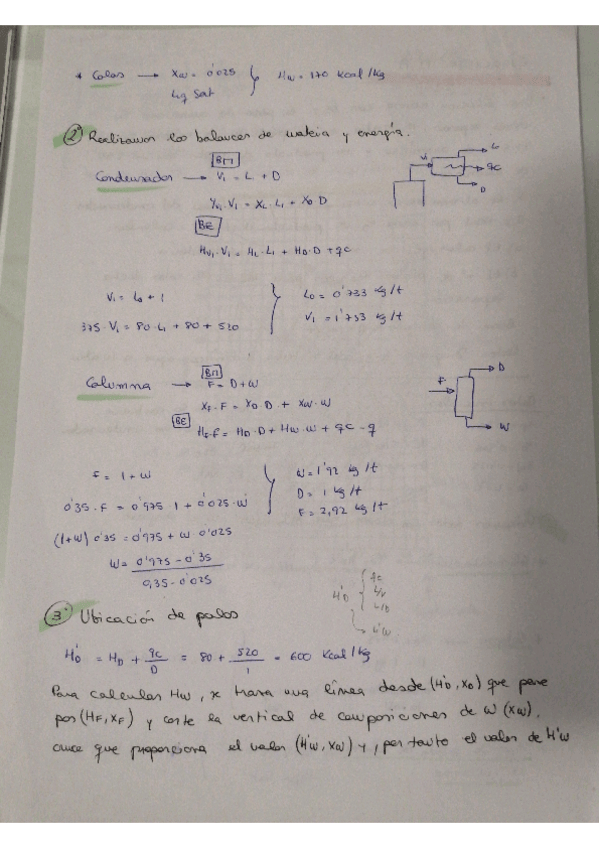 * Colas → Xw = 0'025 } Hw = 170 Kcal/kg
Liq Sat
2º Realizamos los balances de materia y energía.
BM
Condensador → V₁ = L + D
Yv₁·V₁ = XL·L₁ + XD·D
BE
Hv₁·V₁ = HL·L₁ + HD·D + qc
V₁ L₀ qc D
V₁ = L₀ + 1
375·V₁ = 80·L₁ + 80 + 520
L₀ = 0'733 kg/t
V₁ = 1'733 kg/t
BM
Columna → F = D + W
XF·F = XD·D + XW·W
BE
HF·F = HD·D + HW·W + qc - q
F D W
F = 1 + W
0'35·F = 0'975·1 + 0'025·W
(1+W) 0'35 = 0'975 + W 0'025
W = 0'975 - 0'35
0,35 - 0'025
W = 1'92 kg/t
D = 1 kg/t
F = 2,92 kg/t
3º Ubicación de polos
H'D { qc
L/V
L/D
H'W
H'D = HD + qc/D = 80 + 520/1 = 600 Kcal/kg
Para calcular Hw, se traza una línea desde (H'D, XD) que pase
por (HF, XF) y corte la vertical de composiciones de W (XW),
cruce que proporciona el valor (H'W, XW) y, por tanto el valor de H'W